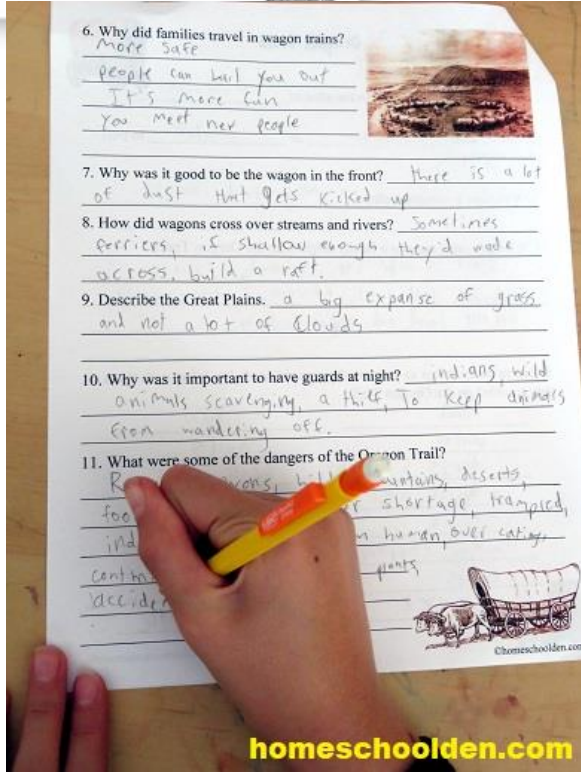 6. Why did families travel in wagon trains?
More safe
people can bail you out
It's more fun
You meet new people
7. Why was it good to be the wagon in the front? there is a lot
of dust that gets kicked up
8. How did wagons cross over streams and rivers? Sometimes
ferriers, if shallow enough they'd wade
across, build a raft.
9. Describe the Great Plains. a big expanse of grass
and not a lot of Clouds
10. Why was it important to have guards at night? indians, wild
animals scavenging, a thief, To keep animals
from wandering off.
11. What were some of the dangers of the Oregon Trail?
deserts,
shortage, trampled,
human, over eating,
plants
©homeschoolden.com
homeschoolden.com